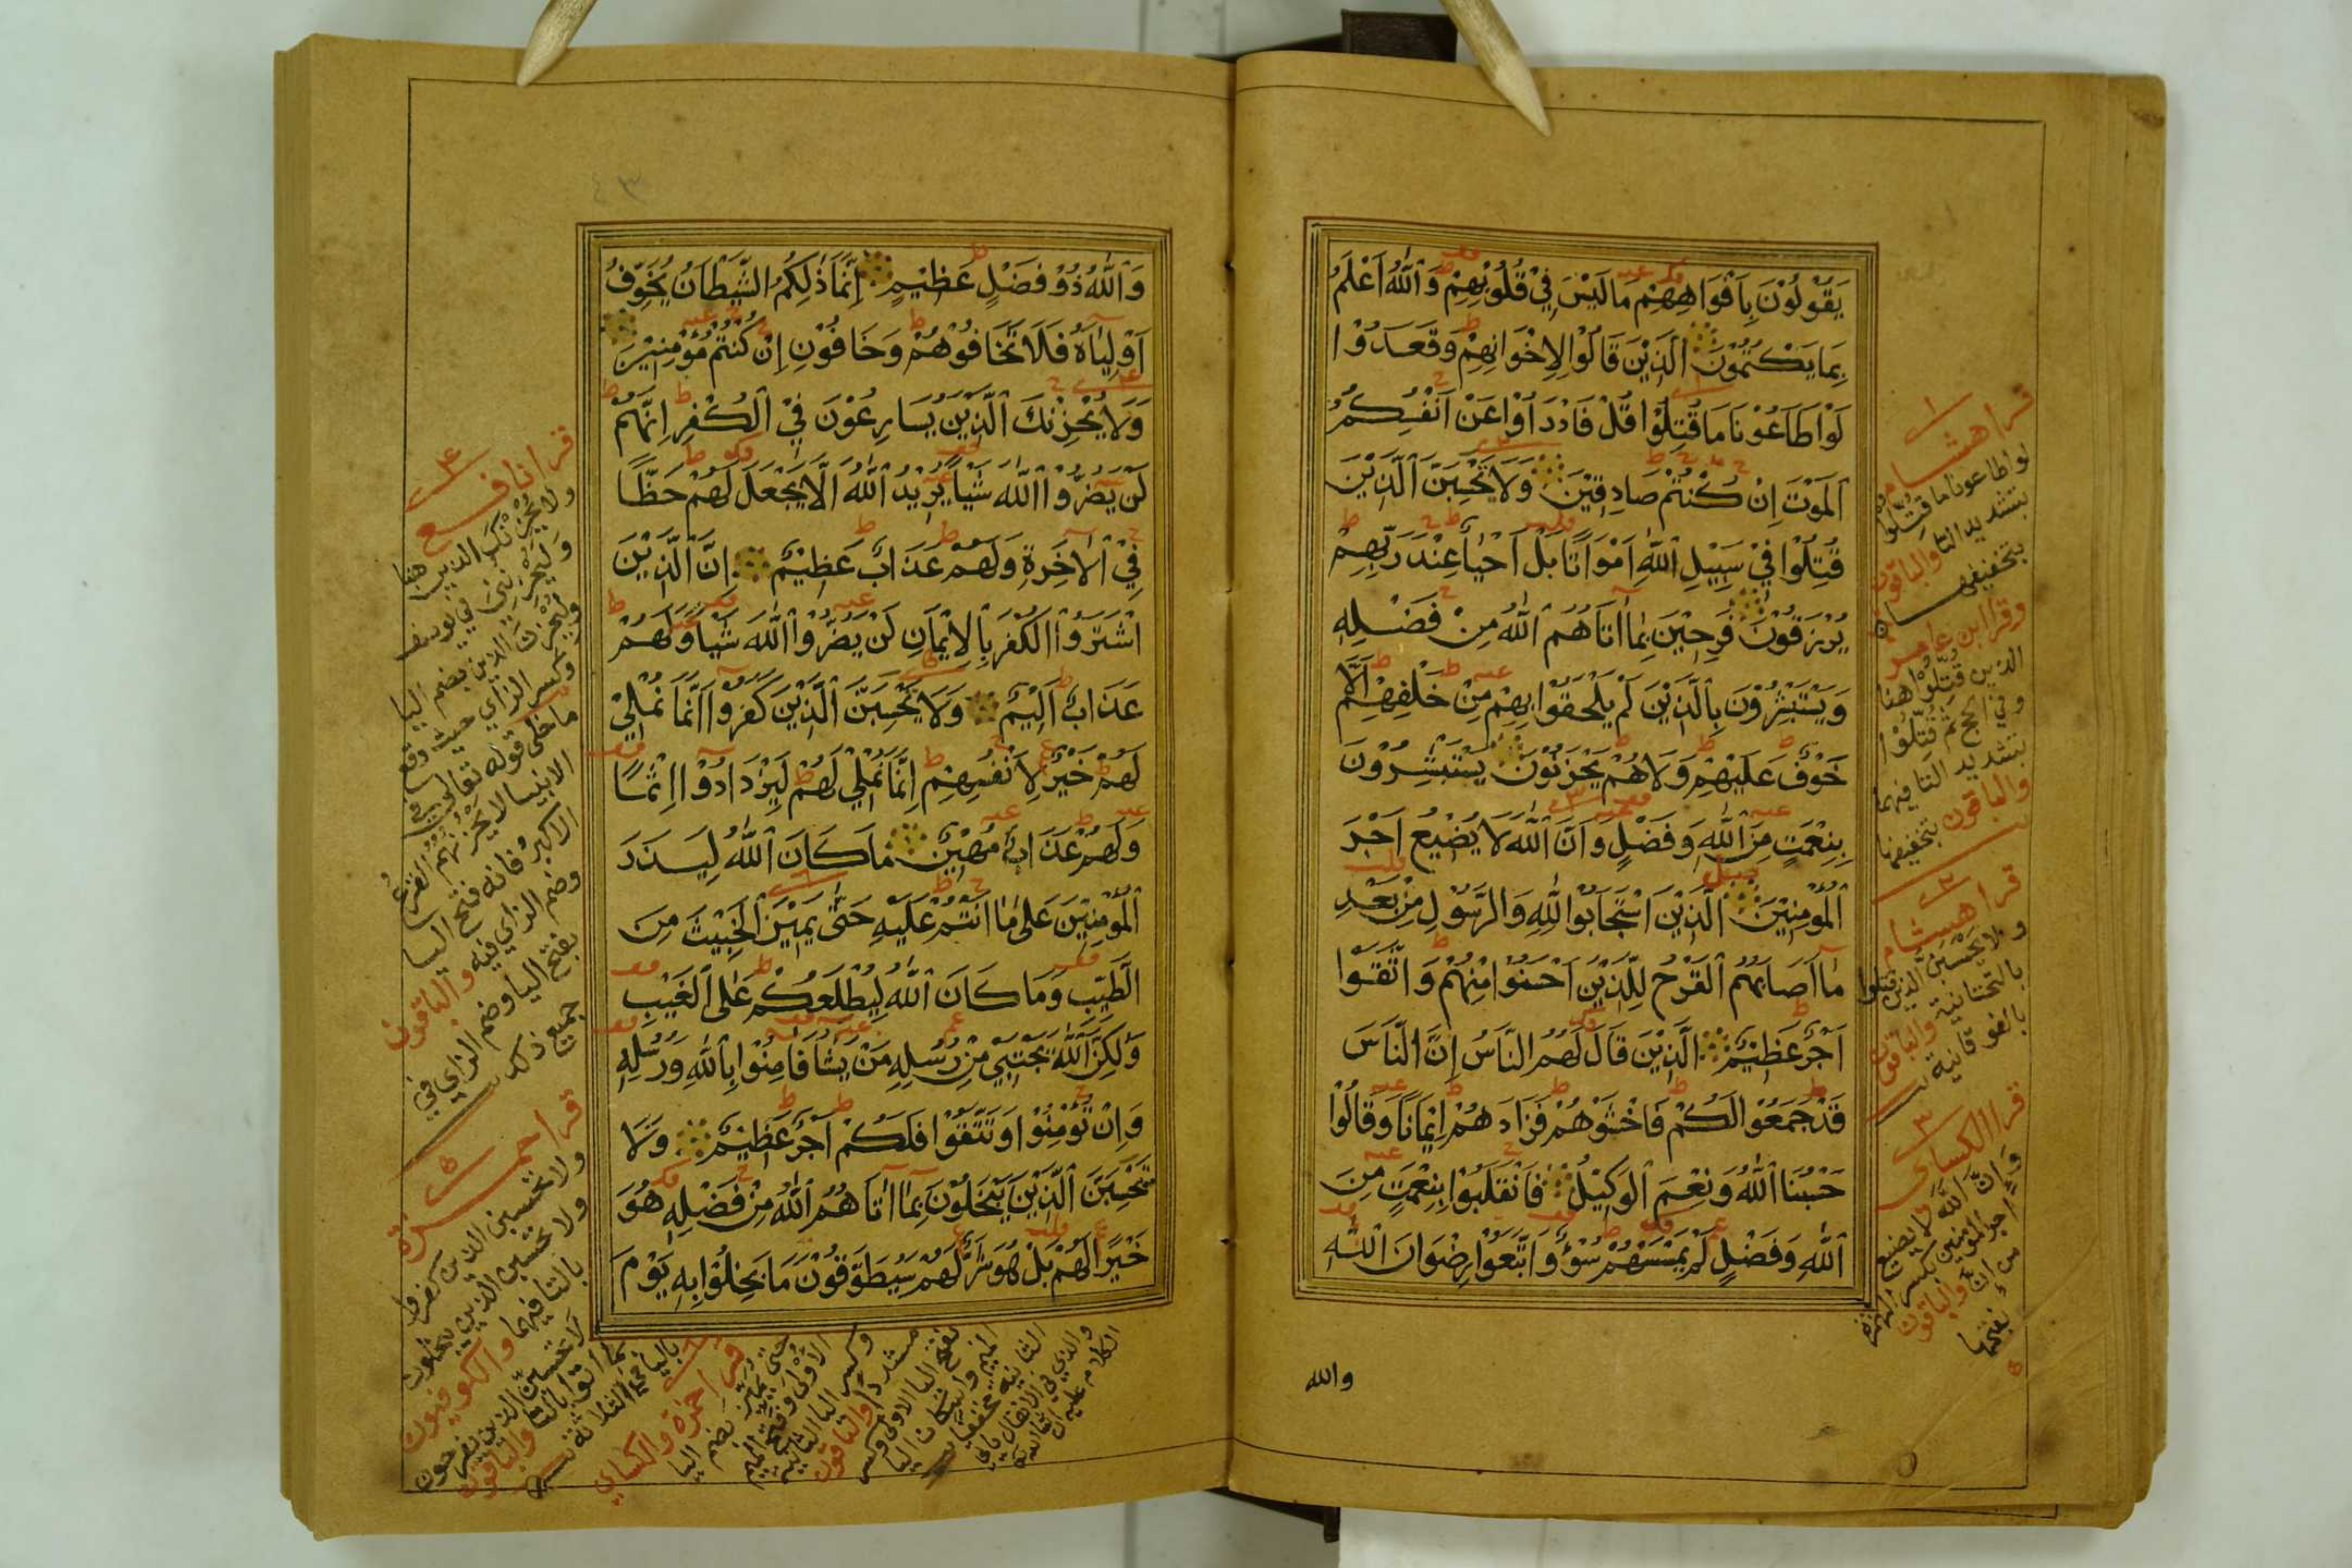 يَقُوْلُوْنَ بِاَفْوَاهِهِمْ مَا لَيْسَ فِيْ قُلُوْبِهِمْ وَاللّٰهُ اَعْلَمُ
بِمَا يَكْتُمُوْنَ الَّذِيْنَ قَالُوْا لِاِخْوَانِهِمْ وَقَعَدُوْا
لَوْ اَطَاعُوْنَا مَا قُتِلُوْا قُلْ فَادْرَاُوْا عَنْ اَنْفُسِكُمُ
الْمَوْتَ اِنْ كُنْتُمْ صَادِقِيْنَ وَلَا تَحْسَبَنَّ الَّذِيْنَ
قُتِلُوْا فِيْ سَبِيْلِ اللّٰهِ اَمْوَاتًا بَلْ اَحْيَاٌ عِنْدَ رَبِّهِمْ
يُرْزَقُوْنَ فَرِحِيْنَ بِمَا اٰتَاهُمُ اللّٰهُ مِنْ فَضْلِهٖ
وَيَسْتَبْشِرُوْنَ بِالَّذِيْنَ لَمْ يَلْحَقُوْا بِهِمْ مِنْ خَلْفِهِمْ اَلَّا
خَوْفٌ عَلَيْهِمْ وَلَا هُمْ يَحْزَنُوْنَ يَسْتَبْشِرُوْنَ
بِنِعْمَتٍ مِنَ اللّٰهِ وَفَضْلٍ وَاَنَّ اللّٰهَ لَا يُضِيْعُ اَجْرَ
الْمُؤْمِنِيْنَ الَّذِيْنَ اسْتَجَابُوْا لِلّٰهِ وَالرَّسُوْلِ مِنْ بَعْدِ
مَا اَصَابَهُمُ الْقَرْحُ لِلَّذِيْنَ اَحْسَنُوْا مِنْهُمْ وَاتَّقَوْا
اَجْرٌ عَظِيْمٌ الَّذِيْنَ قَالَ لَهُمُ النَّاسُ اِنَّ النَّاسَ
قَدْ جَمَعُوْا لَكُمْ فَاخْشَوْهُمْ فَزَادَهُمْ اِيْمَانًا وَقَالُوْا
حَسْبُنَا اللّٰهُ وَنِعْمَ الْوَكِيْلُ فَانْقَلَبُوْا بِنِعْمَتٍ مِنَ
اللّٰهِ وَفَضْلٍ لَمْ يَمْسَسْهُمْ سُوْءٌ وَاتَّبَعُوْا رِضْوَانَ اللّٰهِ
والله
١
قرا هشام
لو اطاعونا ما قُتِّلُوا
بتشديد التا والباقون
بتخفيفها
وقرا ابن عامر
الذين قُتِّلُوْا هنا
وفي الحج ثم قُتِّلُوْا
بتشديد التا فيهما
والباقون بتخفيفهما
٢
قرا هشام
ولا يحسبن الذين قتلوا
بالتحتانية والباقون
بالفوقانية
٣
قرا الكساى
وَاِنَّ اللّٰهَ لا يضيع
اجر المومنين بكسر الهمزة
من ان والباقون
بفتحها
وَاللّٰهُ ذُوْ فَضْلٍ عَظِيْمٍ اِنَّمَا ذٰلِكُمُ الشَّيْطَانُ يُخَوِّفُ
اَوْلِيَاءَهٗ فَلَا تَخَافُوْهُمْ وَخَافُوْنِ اِنْ كُنْتُمْ مُؤْمِنِيْنَ
وَلَا يُحْزِنْكَ الَّذِيْنَ يُسَارِعُوْنَ فِي الْكُفْرِ اِنَّهُمْ
لَنْ يَضُرُّوا اللّٰهَ شَيْاً يُرِيْدُ اللّٰهُ اَلَّا يَجْعَلَ لَهُمْ حَظًّا
فِي الْاٰخِرَةِ وَلَهُمْ عَذَابٌ عَظِيْمٌ اِنَّ الَّذِيْنَ
اشْتَرَوُا الْكُفْرَ بِالْاِيْمَانِ لَنْ يَضُرُّوا اللّٰهَ شَيْاً وَلَهُمْ
عَذَابٌ اَلِيْمٌ وَلَا يَحْسَبَنَّ الَّذِيْنَ كَفَرُوْا اَنَّمَا نُمْلِيْ
لَهُمْ خَيْرٌ لِاَنْفُسِهِمْ اِنَّمَا نُمْلِيْ لَهُمْ لِيَزْدَادُوْا اِثْمًا
وَلَهُمْ عَذَابٌ مُهِيْنٌ مَا كَانَ اللّٰهُ لِيَذَرَ
الْمُؤْمِنِيْنَ عَلٰى مَا اَنْتُمْ عَلَيْهِ حَتّٰى يَمِيْزَ الْخَبِيْثَ مِنَ
الطَّيِّبِ وَمَا كَانَ اللّٰهُ لِيُطْلِعَكُمْ عَلَى الْغَيْبِ
وَلٰكِنَّ اللّٰهَ يَجْتَبِيْ مِنْ رُسُلِهٖ مَنْ يَشَا فَاٰمِنُوْا بِاللّٰهِ وَرُسُلِهٖ
وَاِنْ تُؤْمِنُوْا وَتَتَّقُوْا فَلَكُمْ اَجْرٌ عَظِيْمٌ وَلَا
تَحْسَبَنَّ الَّذِيْنَ يَبْخَلُوْنَ بِمَا اٰتَاهُمُ اللّٰهُ مِنْ فَضْلِهٖ هُوَ
خَيْرًا لَهُمْ بَلْ هُوَ شَرٌّ لَهُمْ سَيُطَوَّقُوْنَ مَا بَخِلُوْا بِهٖ يَوْمَ
٤
قرا نافع
ولا يُحْزِنْكَ الذين هنا
وَلَيُحْزِنُنِي في يوسف
ولِيُحْزِنَ الذين بضم اليا
وكسر الزاي حيث وقع
ما خلى قوله تعالى في
الانبيا لا يَحْزُنُهُم الفَزَعُ
الاكبرُ فانه فتح اليا
وضم الزاي فيه والباقون
بفتح اليا وضم الزاي في
جميع ذلك
٥
قرا حمزة
ولا تحسبن الذين كفروا
ولا تحسبن الذين يبخلون
بالتا فيهما والكوفيون
لا تحسبن الذين يفرحون
بما اتوا بالتا والباقون
باليا في الثلاثة
٦
قرا حمزة والكساي
حتى يُمَيِّزَ بضم اليا
الاُوْلَى وفتح الميم
وكسر اليا الثانية
مشددا والباقون
بفتح اليا الاولى وكسر
الميم واسكان اليا
الثانية مخففا
والذي في الانفال ياتي
الكلام عليه ان شا الله